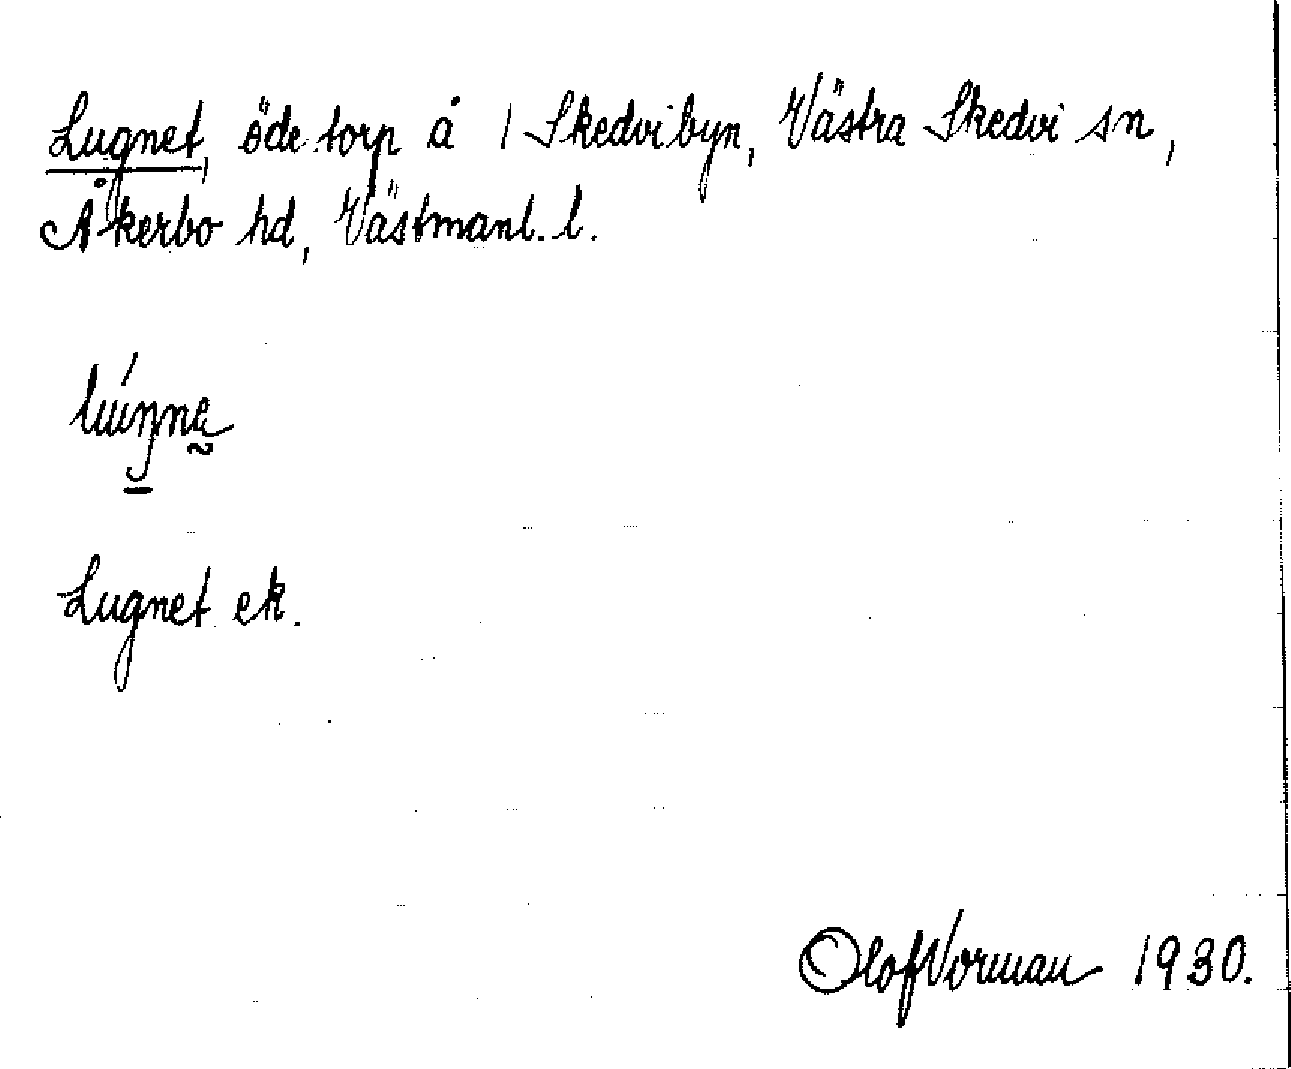 Lugnet, öde torp å 1 Skedvibyn, Västra Skedvi sn,
Åkerbo hd, Västmanl. l.
Lugnet ek.
1930.